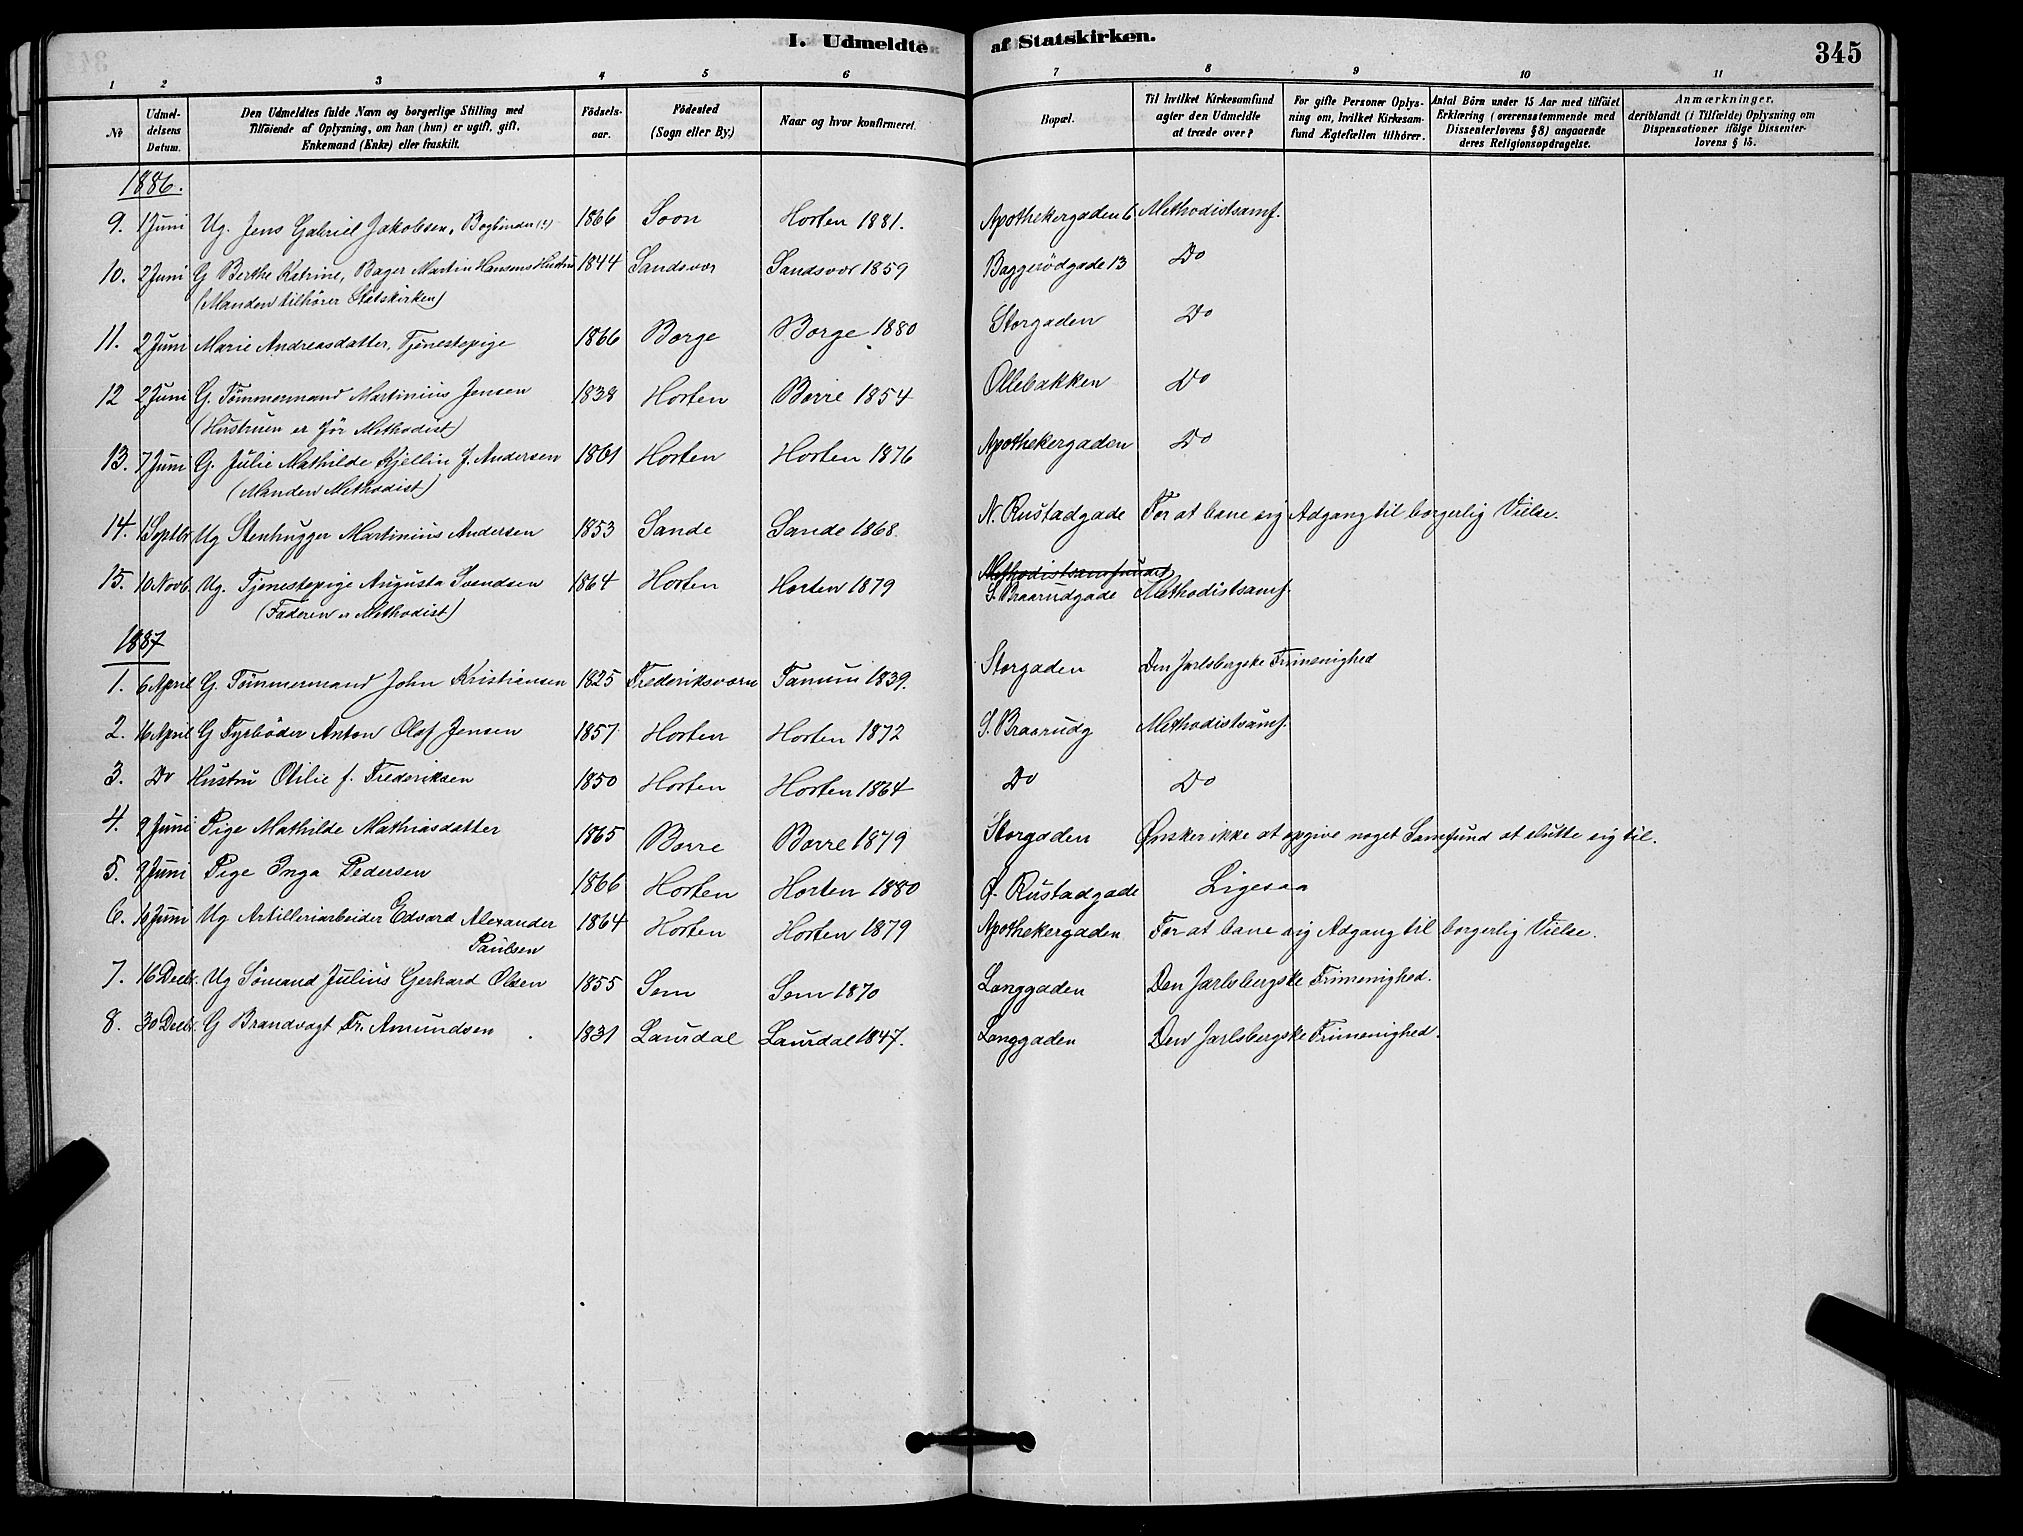 I. Udmeldte af Statskirken.
345
1 2 3 4 5 6 7 8 9 10 11
No
Udmel-
delsens
Datum.
Den Udmeldtes fulde Navn og borgerlige Stilling med
Tilföiende af Oplysning, om han (hun) er ugift, gift,
Enkemand (Enke) eller fraskilt.
Födsels-
aar.
Födested
(Sogn eller By.)
Naar og hvor konfirmeret.
Bopæl.
Til hvilket Kirkesamfund
agter den Udmeldte
at træde over?
For gifte Personer Oplys-
ning om, hvilket Kirkesam-
fund Ægtefællen tilhörer.
Antal Börn under 15 Aar med tilföiet
Erklæring (overensstemmende med
Dissenterlovens § 8) angaaende
deres Religionsopdragelse.
Anmærkninger,
deriblandt (i Tilfælde) Oplysning om
Dispensationer ifölge Dissenter-
lovens § 15.
1886.
9. 1 Juni Ug. Jens Gabriel Jakobsen, Bogbinder (?) 1866 Soon Horten 1881. Apothekergaden 6 Methodistsamf.
10. 2 Juni G Berthe Katrine, Bager Martin Hansens Hustru 1844 Sandsvær Sandsvær 1859 Baggerødgade 13 Do
(Manden tilhører Statskirken)
11. 2 Juni Marie Andreasdatter, Tjenestepige 1866 Borge Borge 1880 Storgaden Do
12 2 Juni G. Tømmermand Martinius Jensen 1838 Horten Borre 1854 Ollebakken Do
(Hustruen er før Methodist)
13. 7 Juni G. Julie Mathilde Kjellin f. Andersen 1861 Horten Horten 1876 Apothekergaden Do
(Manden Methodist)
14. 1 Septbr Ug Stenhugger Martinius Andersen 1853 Sande Sande 1868. N. Rustadgade For at bane sig Adgang til borgerlig Vielse.
Methodistsamfundet
15. 10 Novb. Ug. Tjenestepige Augusta Svendsen 1864 Horten Horten 1879 S. Braarudgade Methodistsamf.
(Faderen er Methodist)
1887
1. 6 April G. Tømmermand John Kristiansen 1825 Frederiksværn Tanum 1839. Storgaden Den Jarlsbergske Frimenighed
2. 16 April G Fyrbøder Anton Olaf Jensen 1857 Horten Horten 1872 S. Braarudg Methodistsamf.
3. Do Hustru Otilie f. Frederiksen 1850 Horten Horten 1864 Do Do
4. 9 Juni Pige Mathilde Mathiasdatter 1865 Borre Borre 1879 Storgaden Ønsker ikke at opgive noget Samfund at slutte sig til.
5. 9 Juni Pige Inga Pedersen 1866 Horten Horten 1880 Ø. Rustadgade Ligesaa
6. Juni Ug Artilleriarbeider Edvard Alexander 1864 Horten Horten 1879 Apothekergaden For at bane sig Adgang til borgerlig Vielse.
Paulsen
7. 16 Decbr. Ug Sømand Julius Gerhard Olsen 1855 Sem Sem 1870 Langgaden Den Jarlsbergske Frimenighed.
8. 30 Decbr. G Brandvagt Fr. Amundsen 1831 Laurdal Laurdal 1847. Langgaden Den Jarlsbergske Frimenighed.